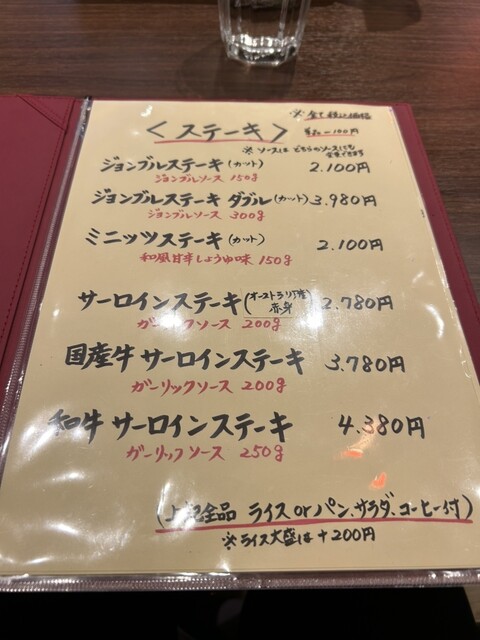 ※全て税込価格
<ステーキ>
※ソースはどちらのソースにも変更できます
ジョンブルステーキ(カット) 2.100円
ジョンブルソース 150g
ジョンブルステーキ ダブル(カット) 3.980円
ジョンブルソース 300g
ミニッツステーキ(カット) 2.100円
和風甘辛しょうゆ味 150g
サーロインステーキ(オーストラリア産 赤身) 2.780円
ガーリックソース 200g
国産牛 サーロインステーキ 3.780円
ガーリックソース 200g
和牛 サーロインステーキ 4.380円
ガーリックソース 250g
(上記全品 ライス or パン、サラダ、コーヒー付)
※ライス大盛は +200円